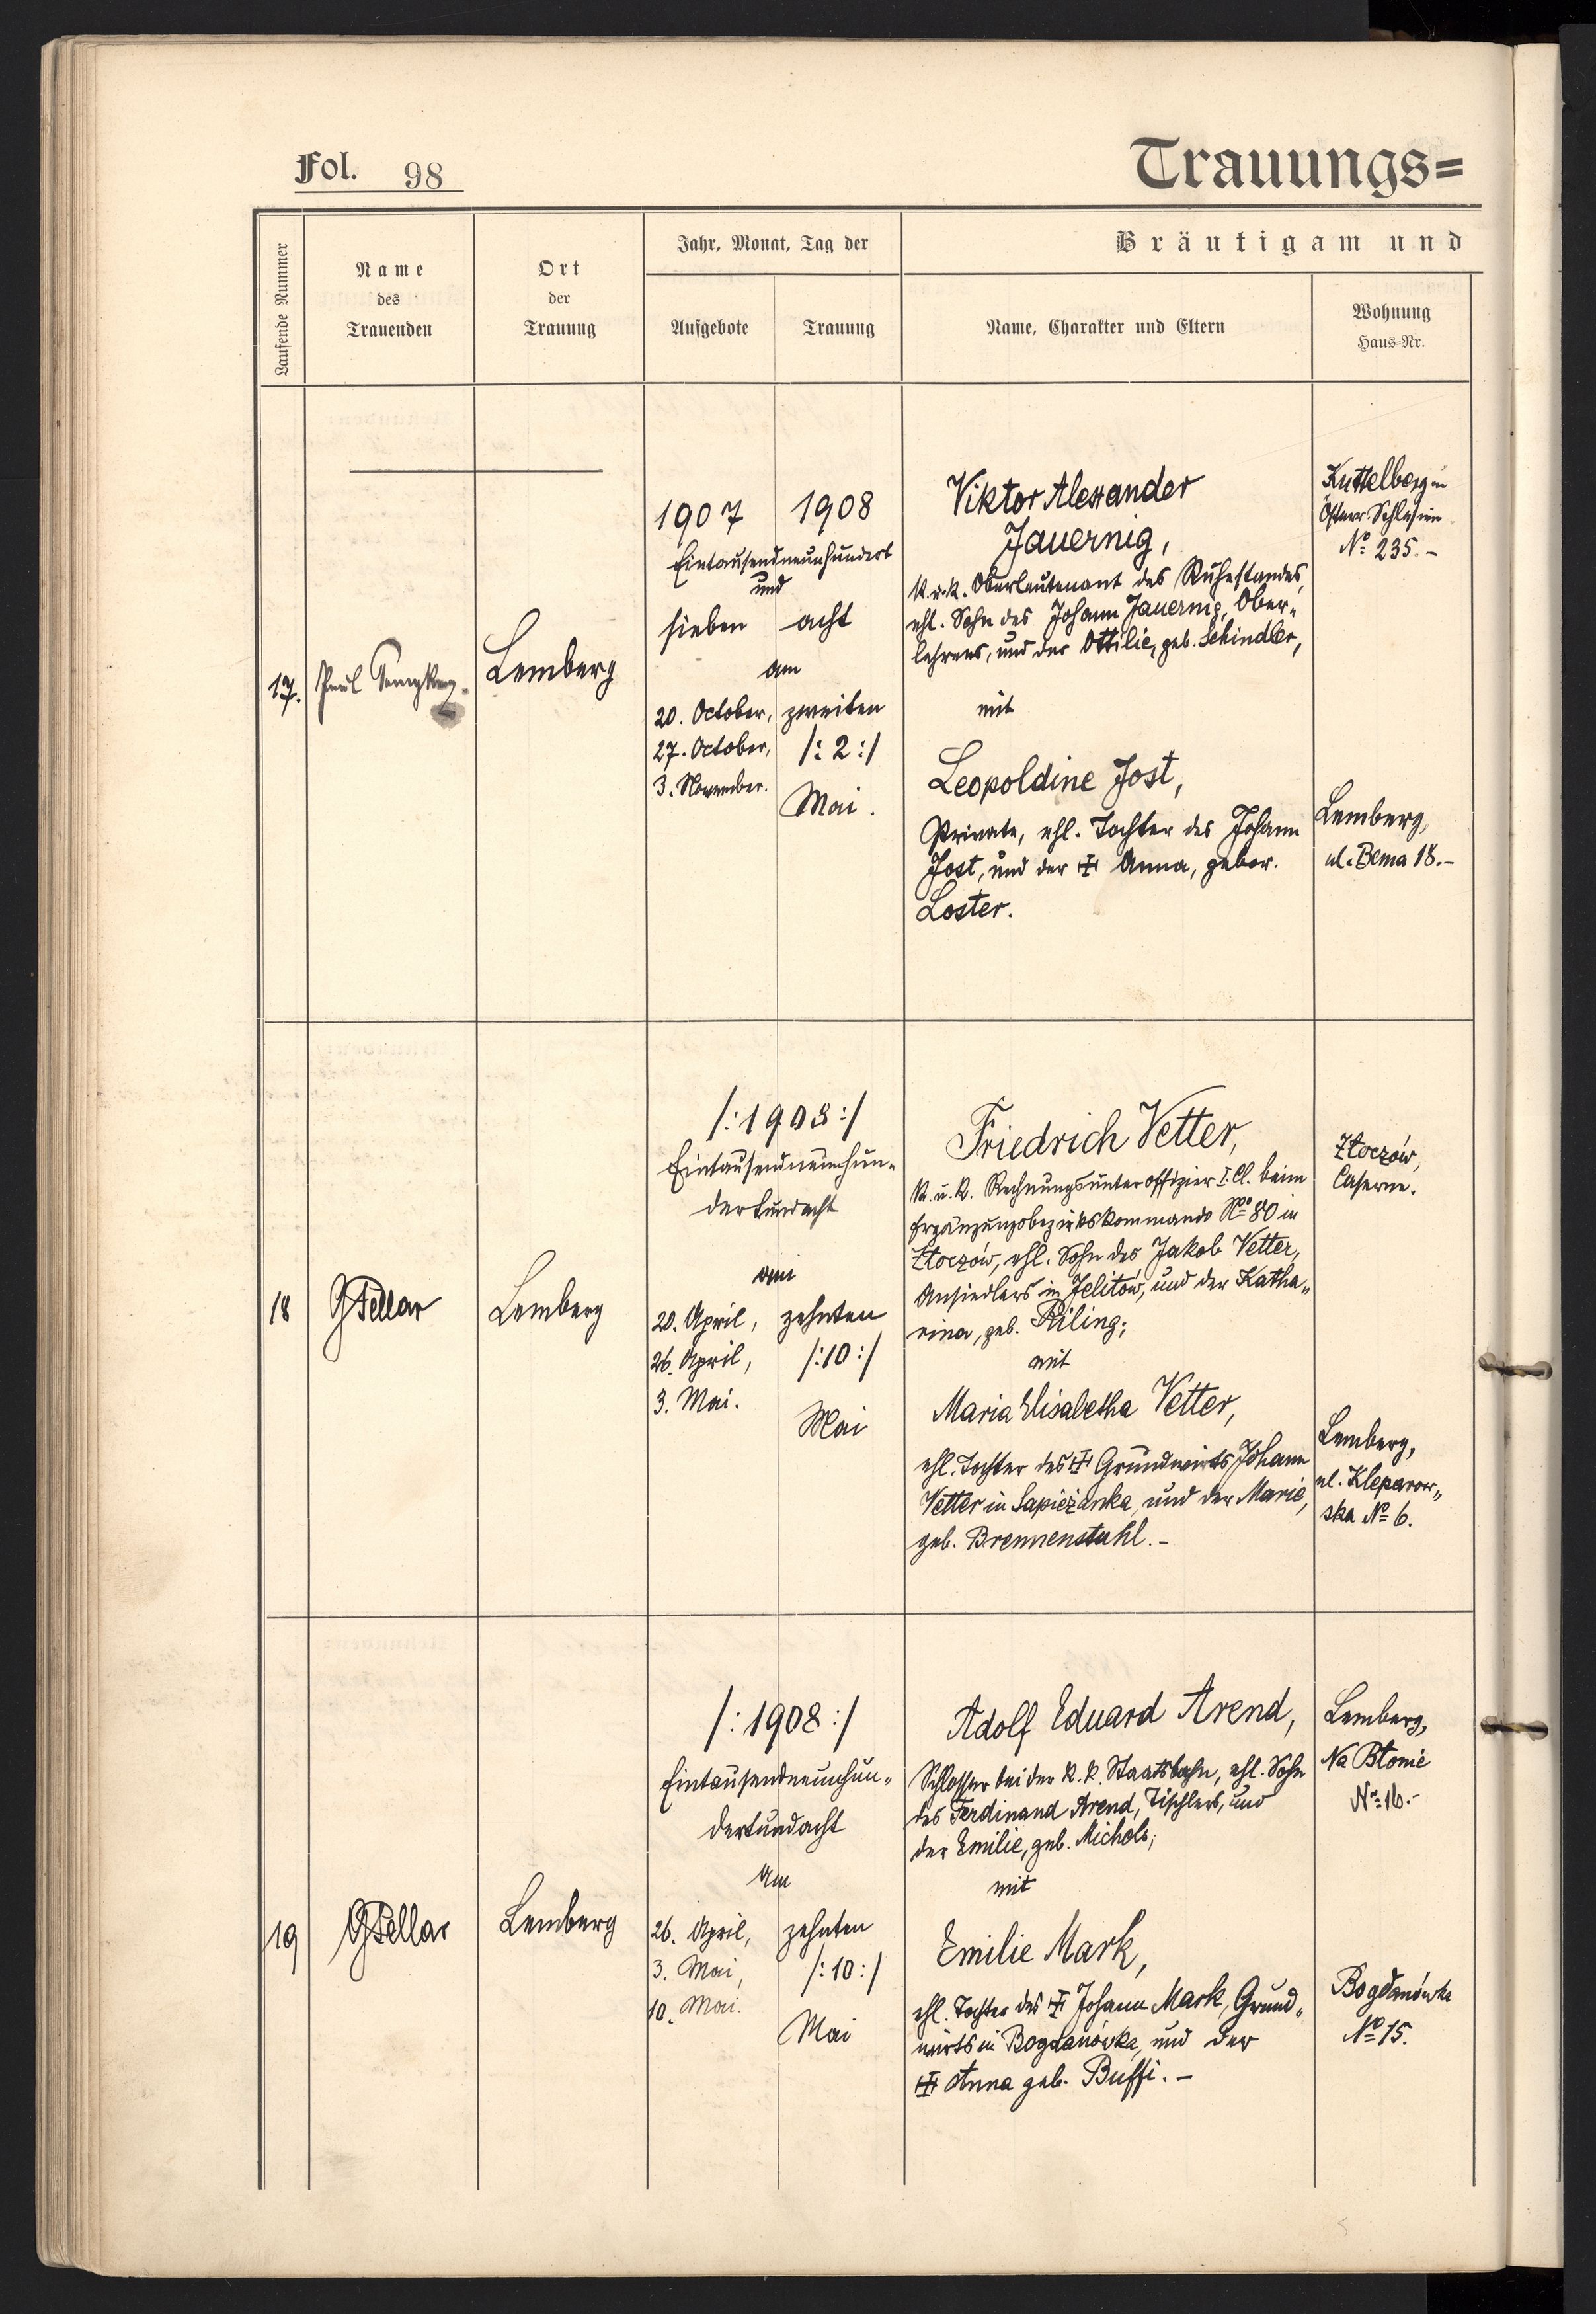 Fol. 98
Trauungs=
Laufende Nummer
Name
des
Trauenden
Ort
der
Trauung
Jahr, Monat, Tag der
Aufgebote
Trauung
Bräutigam und
Name, Charakter und Eltern
Wohnung
Haus-Nr.
17.
Paul
Lemberg
1907 1908
Eintausendneunhundert
und
sieben acht
am
20. October, zweiten
27. October, /: 2 :/
3. November.
Mai.
Viktor Alexander
Jauernig,
k. u. k. Oberleutenant des Ruhestandes,
ehl. Sohn des Johann Jauernig, Ober-
lehrers, und der Ottilie, geb. Schindler,
mit
Leopoldine Jost,
Private, ehl. Tochter des Johann
Jost, und der ┼ Anna, gebor.
Loster.
Kuttelberg in
Österr. Schlesien
No 235.-
Lemberg,
ul. Bema 18.-
18
GKellar
Lemberg
/: 1908 :/
Eintausendneunhun-
dertundacht
am
20. April, zehnten
26. April, /: 10 :/
3. Mai.
Mai
Friedrich Vetter,
k. u. k. Rechnungsunteroffizier I. Cl. beim
Ergänzungsbezirkskommando No 80 in
Złoczów, ehl. Sohn des Jakob Vetter,
Ansiedlers in Jelitow, und der Katha-
rina, geb. Riling;
mit
Maria Elisabetha Vetter,
ehl. Tochter des ┼ Grundwirts Johann
Vetter in Sapieżanka, und der Marie,
geb. Brennenstuhl.-
Złoczów,
Caserne.
Lemberg,
ul. Kleparow-
ska No 6.
19
GKellar
Lemberg
/: 1908 :/
Eintausendneunhun-
dertundacht
am
26. April, zehnten
3. Mai, /: 10 :/
10. Mai.
Mai
Adolf Eduard Arend,
Schlosser bei der k. k. Staatsbahn, ehl. Sohn
des Ferdinand Arend, Tischlers, und
der Emilie, geb. Michols;
mit
Emilie Mark,
ehl. Tochter des ┼ Johann Mark, Grund-
wirts in Bogdanówka, und der
┼ Anna geb. Buffi.-
Lemberg,
Na Błonie
No 16.-
Bogdanówka
No 15.